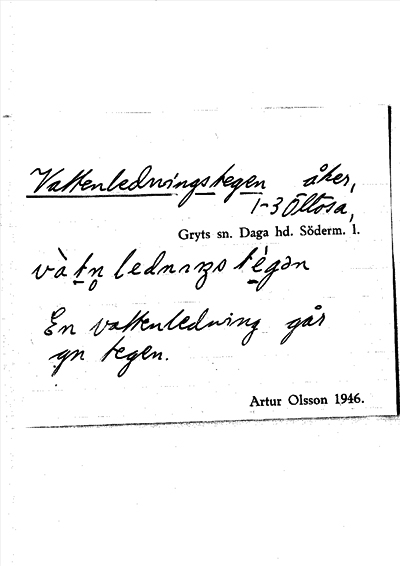 Vattenledningstegen åker,
1-3 Öltosa,
Gryts sn. Daga hd. Söderm. l.
vàtn̥ lednıŋs tègən
En vattenledning går
gn tegen.
Artur Olsson 1946.